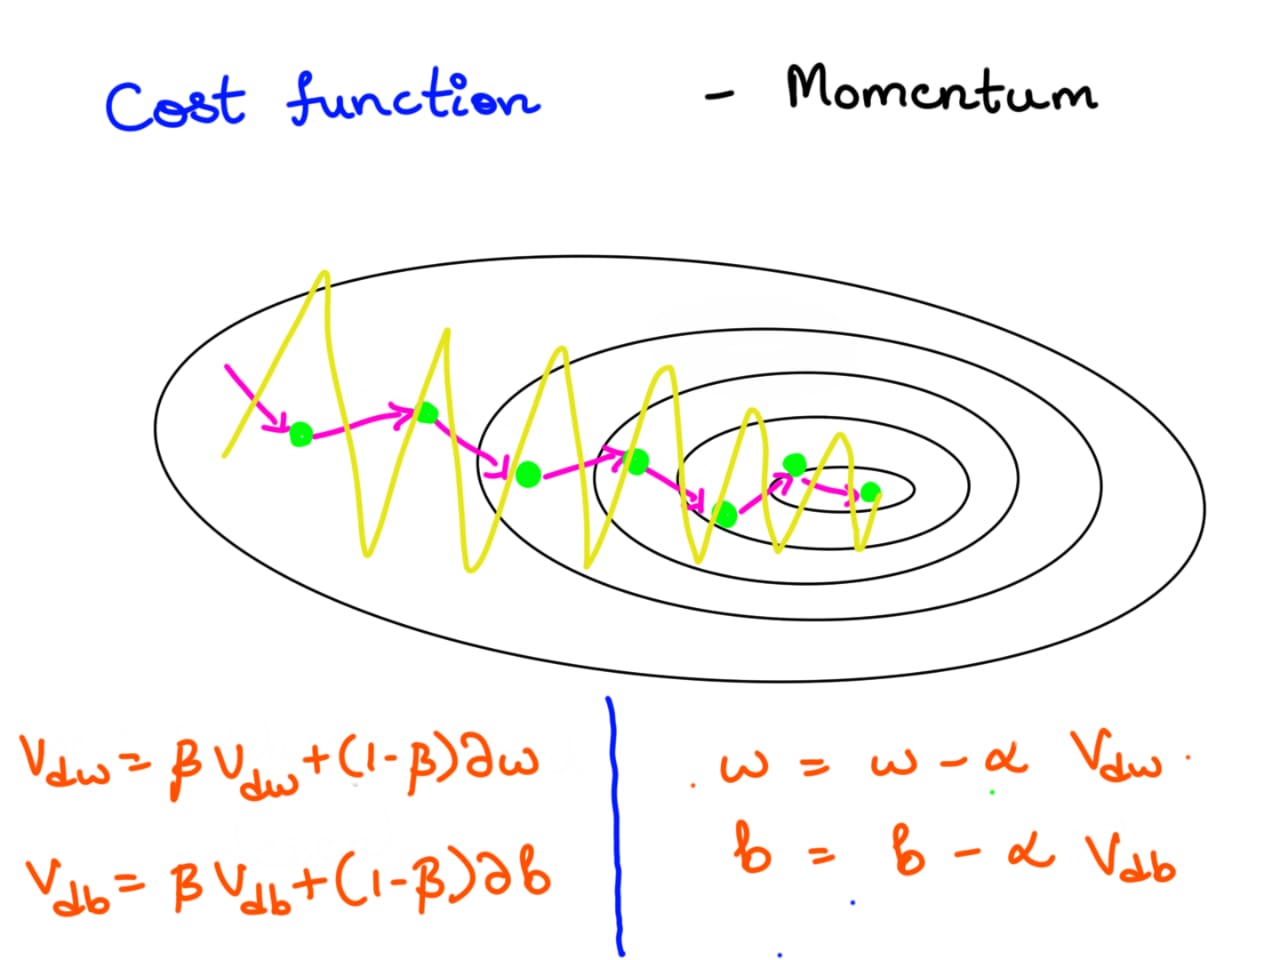 Cost function - Momentum
V_dw = β V_dw + (1-β) ∂w
V_db = β V_db + (1-β) ∂b
w = w - α V_dw
b = b - α V_db